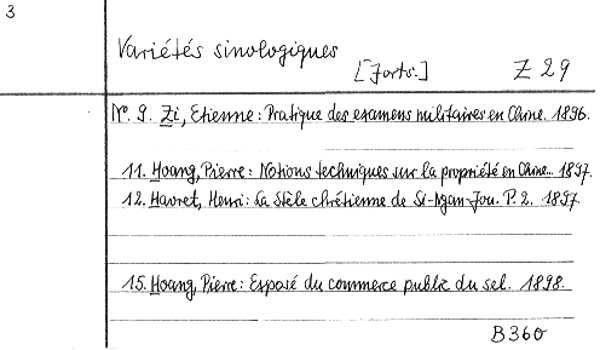 3
Variétés sinologiques
[Forts.] Z 29
No. 9. Zi, Etienne: Pratique des examens militaires en Chine. 1896.
11. Hoang, Pierre: Notions techniques sur la propriété en Chine... 1897.
12. Havret, Henri: La Stèle chrétienne de Si-Ngan-Fou. P. 2. 1897.
15. Hoang, Pierre: Exposé du commerce public du sel. 1898.
B360